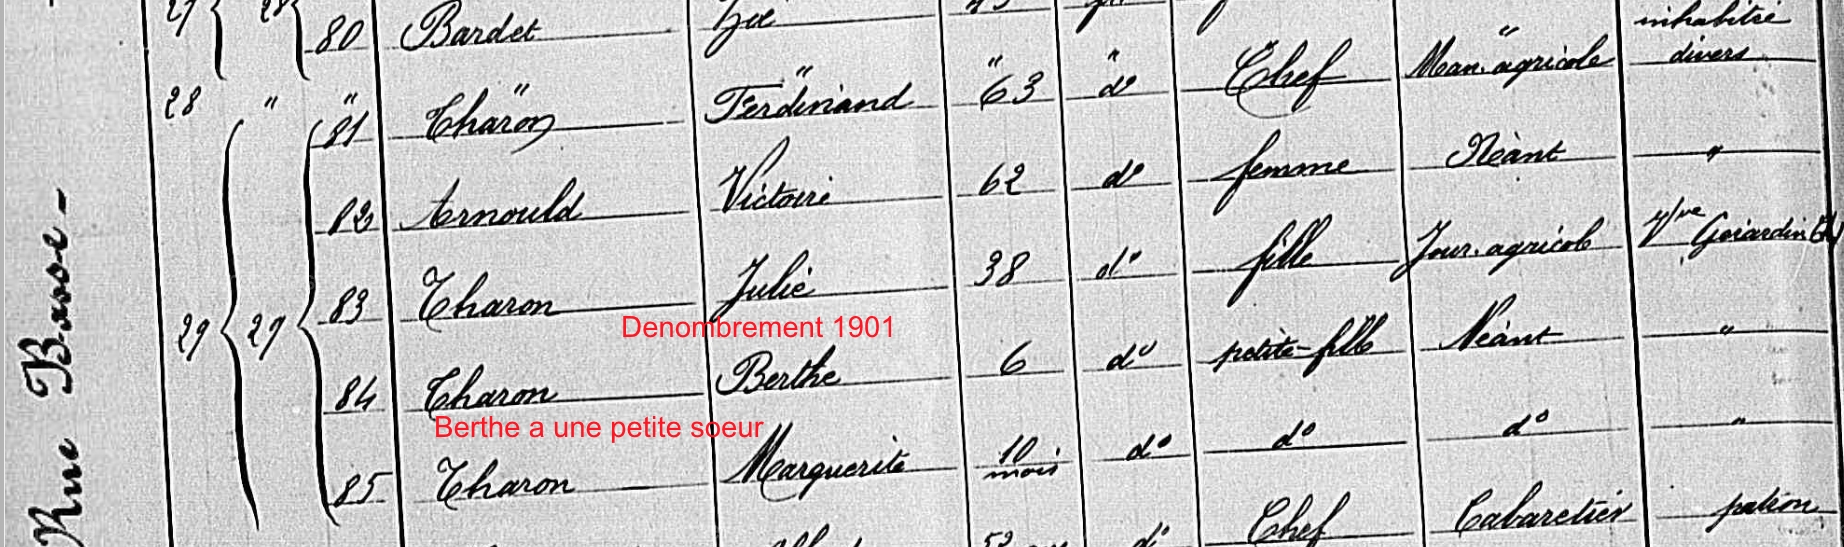 Rue Basse -
27 28 80 Bardet Zoé 45
inhabitée
28 " " " " " " " "
81 Charon Ferdinand 63 do Chef Man. agricole divers
82 Arnould Victoire 62 do femme Néant "
29 29 83 Charon Julie 38 do fille Jour. agricole Vve Gérardin
Denombrement 1901
84 Charon Berthe 6 do petite-fille Néant "
Berthe a une petite soeur
85 Charon Marguerite 10 mois do do do "
do Chef Cabaretier patron